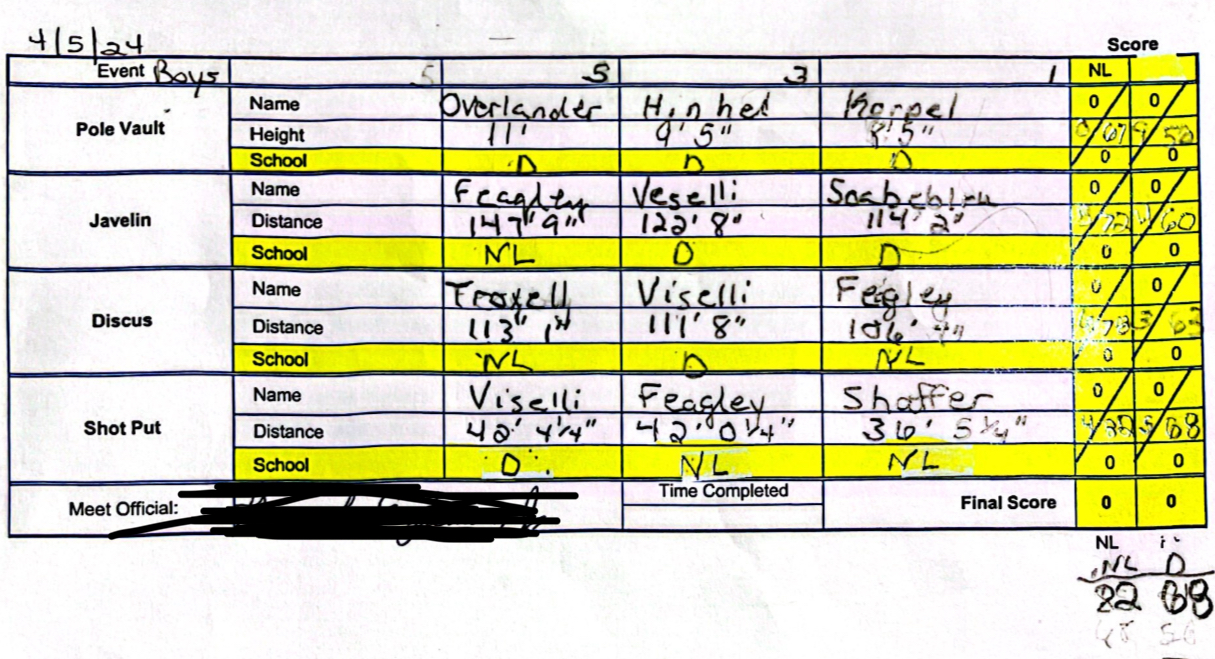 4/5/24
Score
Event Boys 5 3 1 NL
Name Overlander Hinhel Korpel 0 0
Pole Vault
Height 11' 9'5" 8'5" 67 9 50
School D D D 0 0
Name Feagley Veselli 0 0
Javelin
Distance 147' 9" 122' 8" 114' 2" 72 60
School NL D D 0 0
Name Troxell Viselli Fegley 0 0
Discus
Distance 113' 1" 111' 8" 106' 78 3 63
School NL D NL 0 0
Name Viselli Feagley Shaffer 0 0
Shot Put
Distance 42' 4¼" 42' 0¼" 36' 5¼" 4 82 5 68
School D NL NL 0 0
Meet Official: Time Completed Final Score 0 0
NL
NL D
82 68